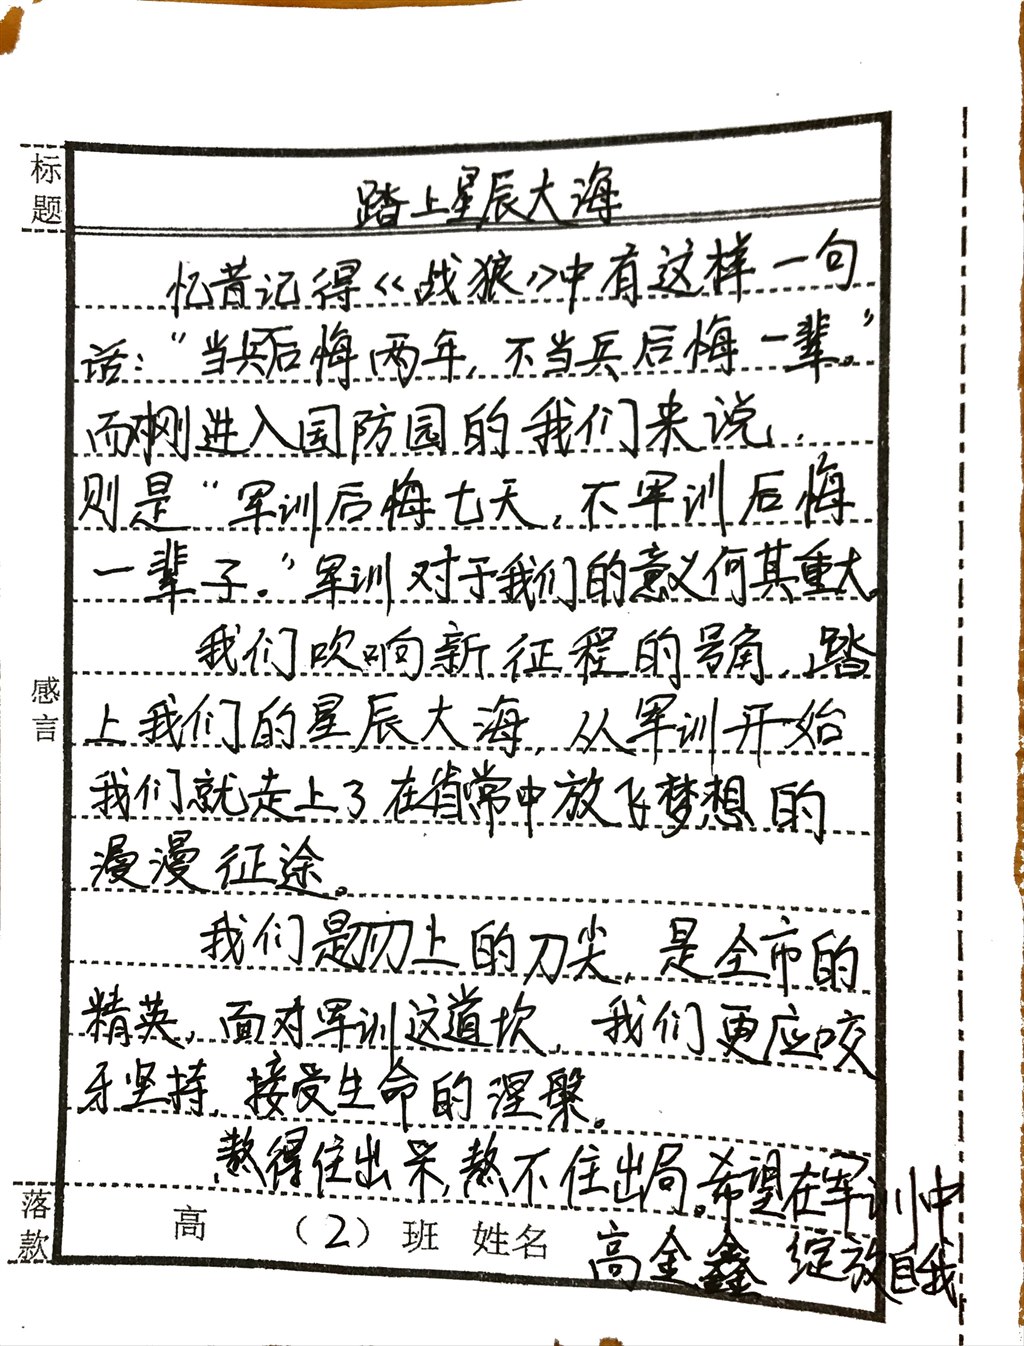 标题
踏上星辰大海
忆昔记得《战狼》中有这样一句
话：“当兵后悔两年，不当兵后悔一辈。”
而对刚进入国防园的我们来说，
则是“军训后悔七天，不军训后悔
一辈子。”军训对于我们的意义何其重大。
我们吹响新征程的号角，踏
上我们的星辰大海，从军训开始
我们就走上了在省常中放飞梦想的
漫漫征途。
感言
我们是刀刃上的刀尖，是全市的
精英，面对军训这道坎，我们更应咬
牙坚持，接受生命的涅槃。
熬得住出采，熬不住出局。希望在军训中
绽放自我
落款
高 （2）班 姓名 高全鑫